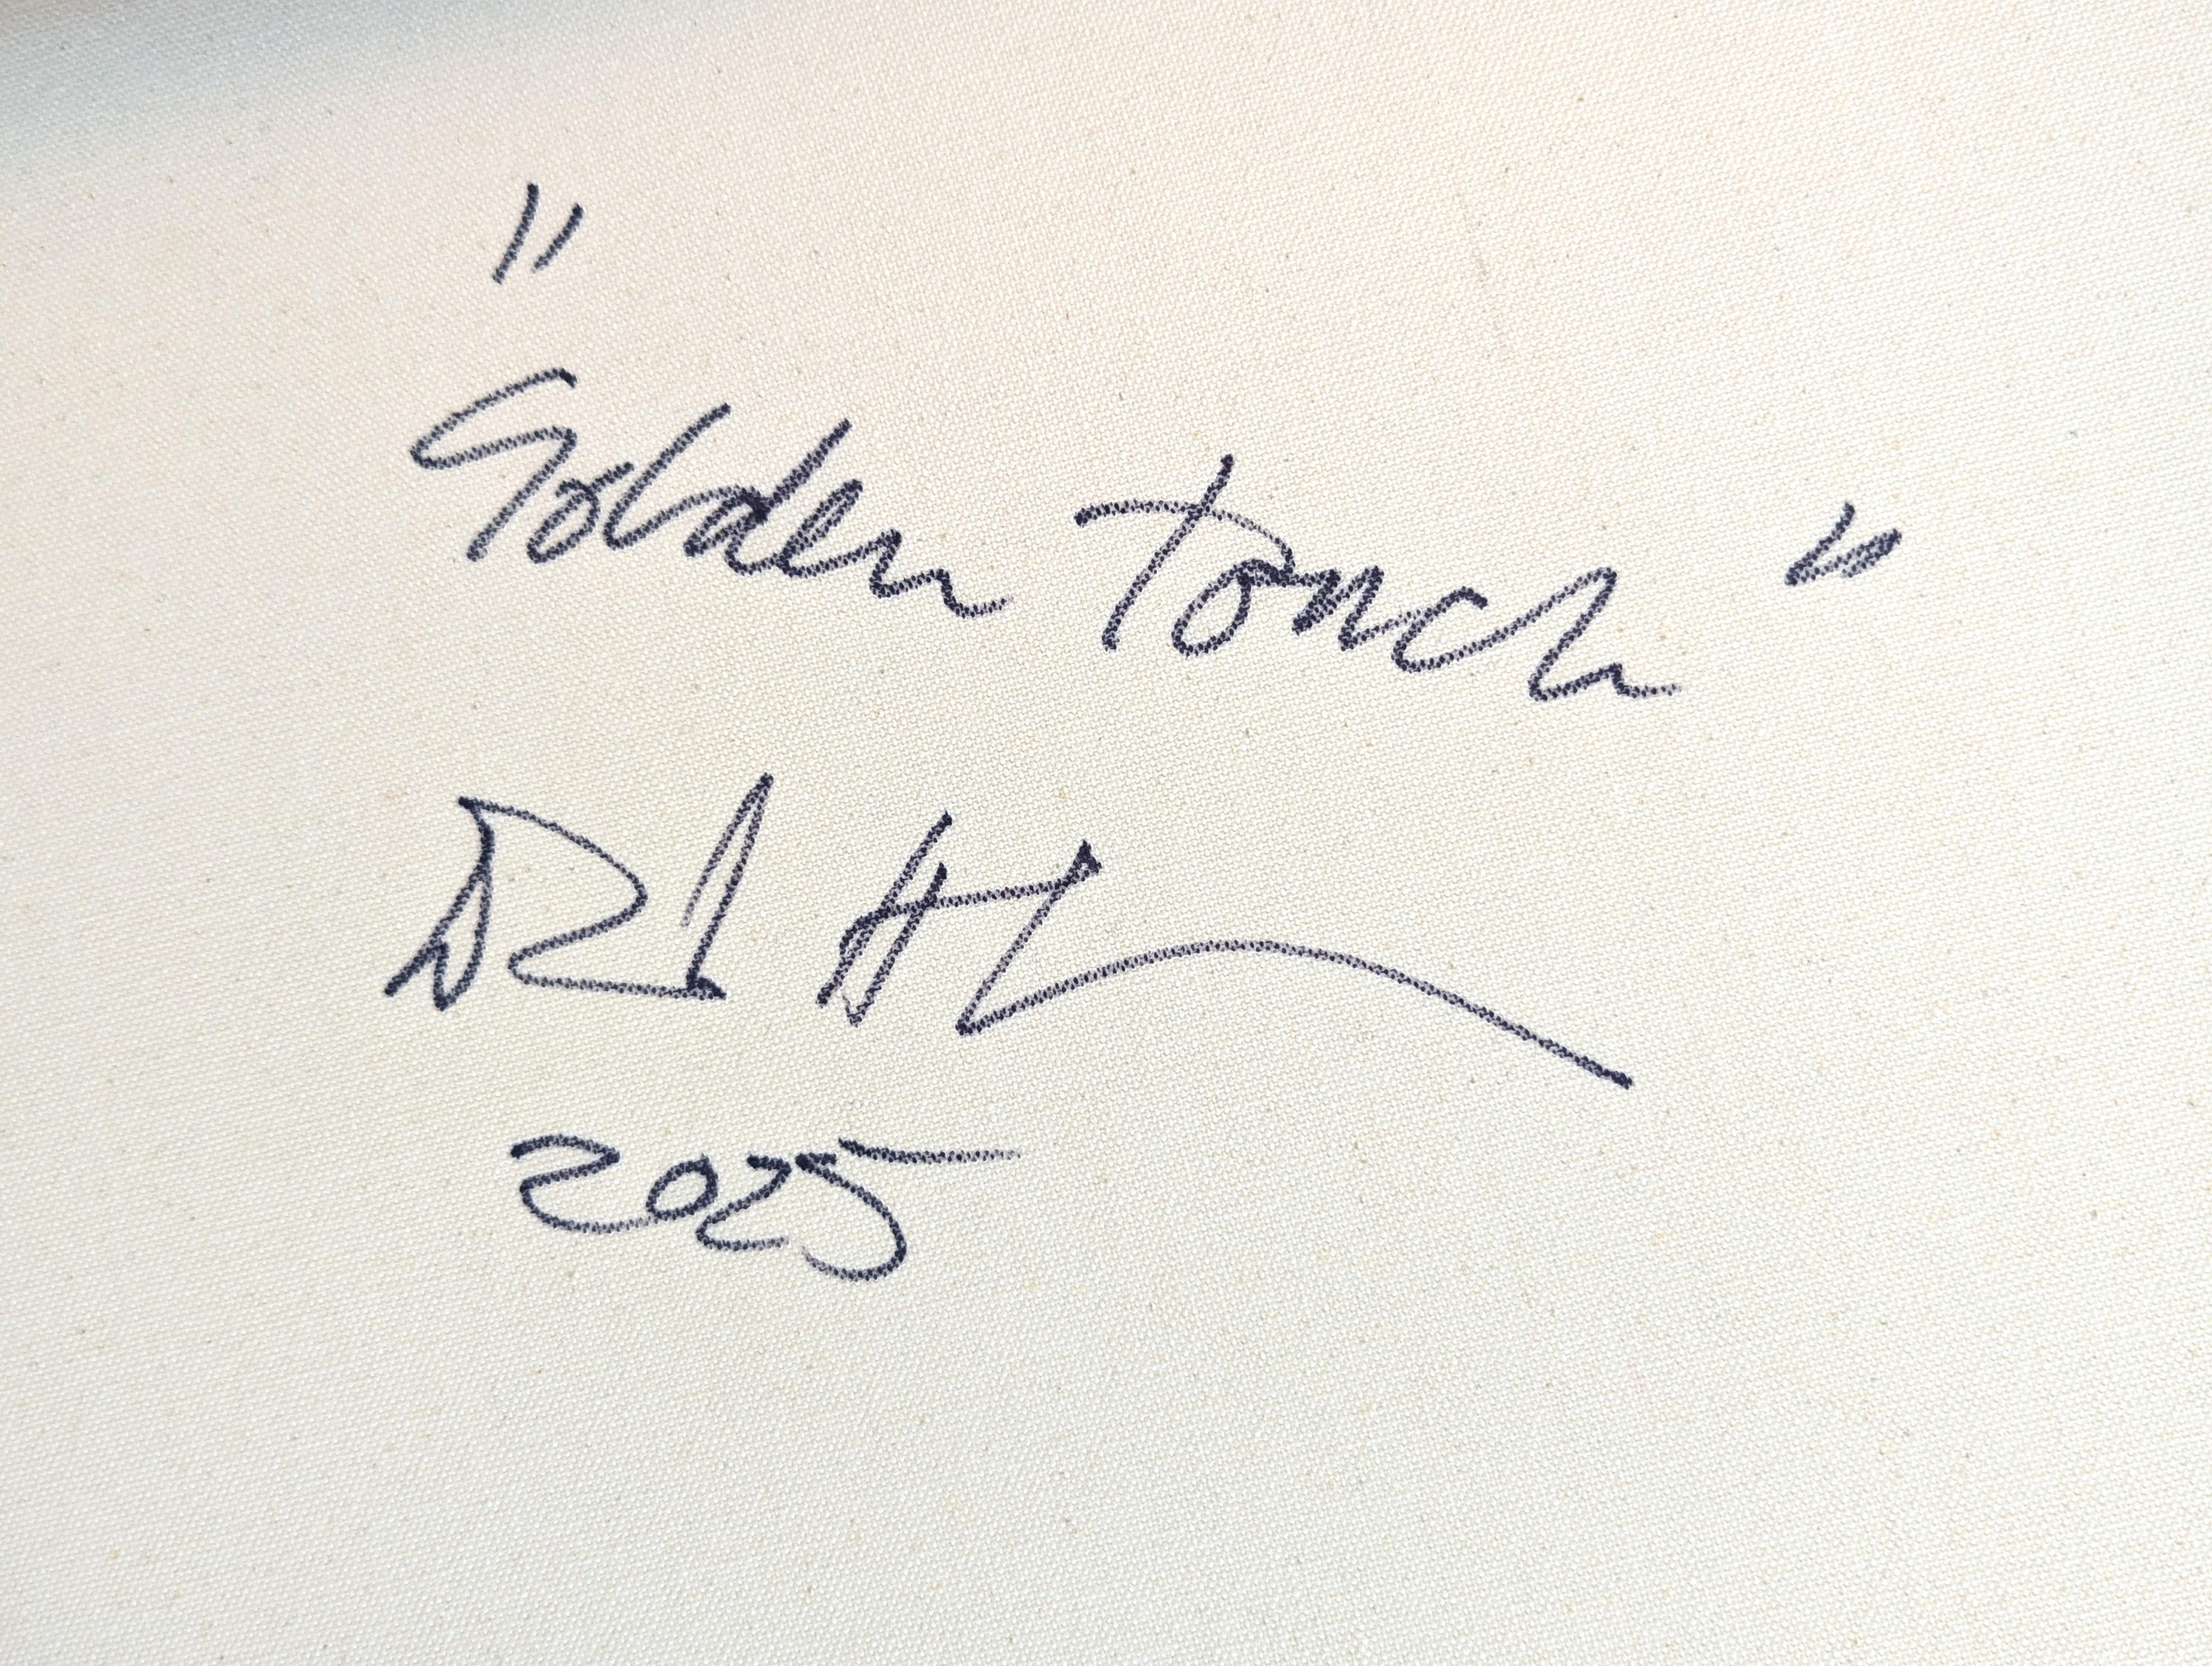 "Golden Touch"
2025